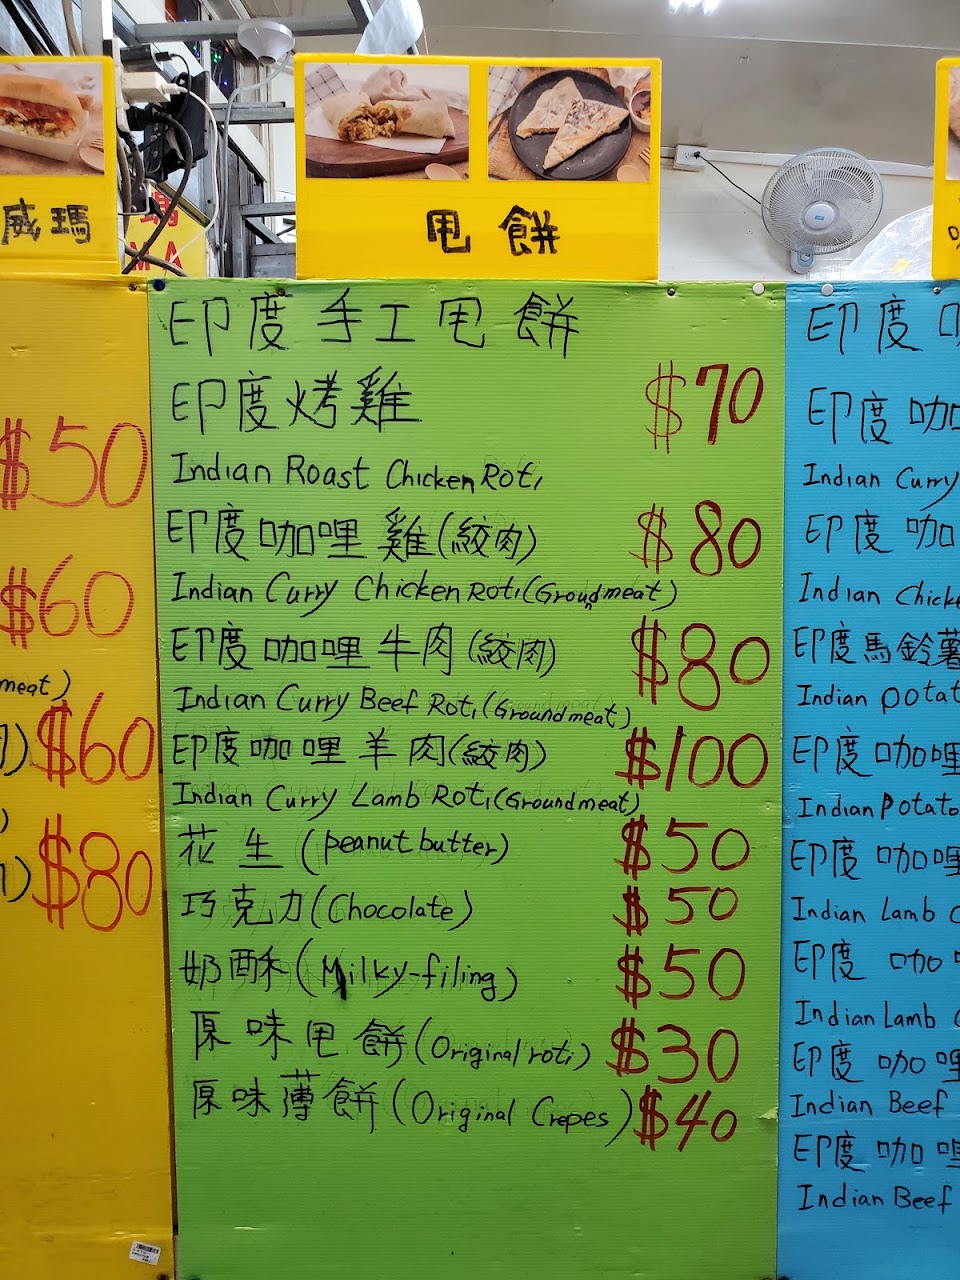 威瑪
甩餅
印度手工甩餅
印度烤雞 $70
Indian Roast Chicken Roti
印度咖哩雞(絞肉) $80
Indian Curry Chicken Roti(Groundmeat)
印度咖哩牛肉(絞肉) $80
Indian Curry Beef Roti(Groundmeat)
印度咖哩羊肉(絞肉) $100
Indian Curry Lamb Roti(Groundmeat)
花生(peanut butter) $50
巧克力(Chocolate) $50
奶酥(Milky-filing) $50
原味甩餅(Original roti) $30
原味薄餅(Original Crepes) $40
$50
$60
meat)
$60
$80
印度
印度咖
Indian Curry
印度咖
Indian Chicke
印度馬鈴薯
Indian potat
印度咖哩
Indian Potato
印度咖哩
Indian Lamb
印度咖
Indian Lamb
印度咖哩
Indian Beef
印度咖哩
Indian Beef